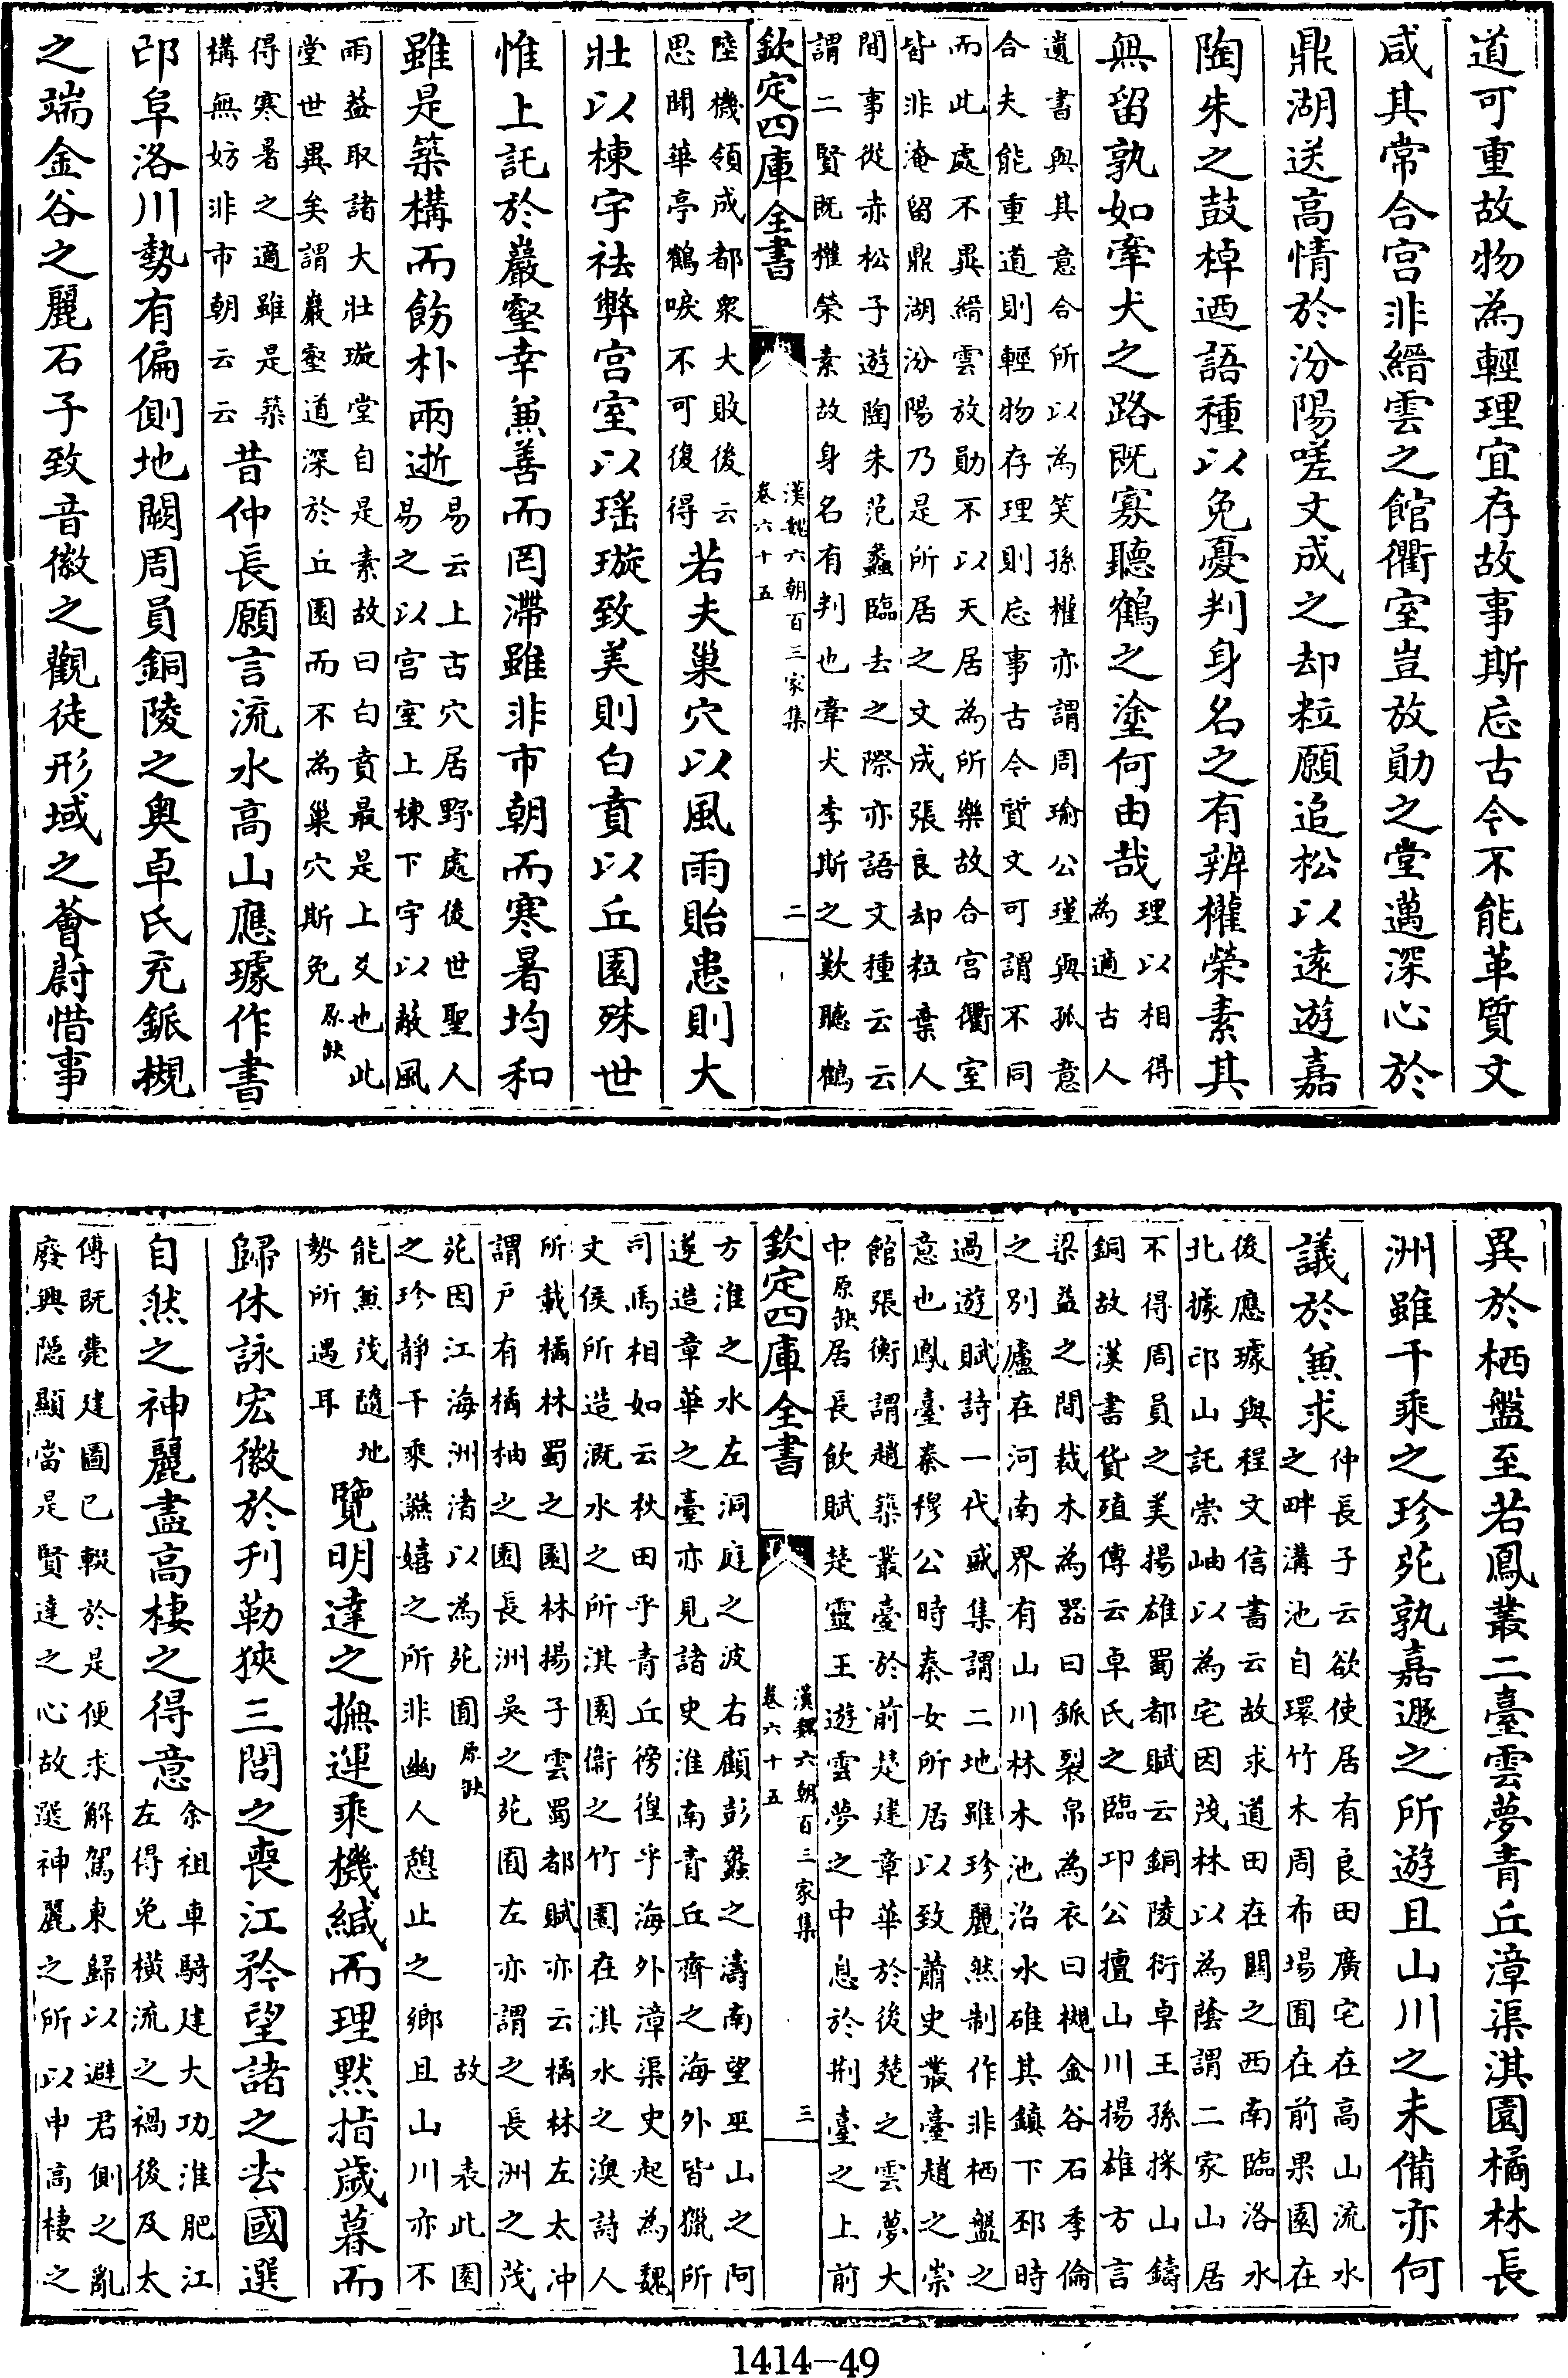 道可重故物為輕理宜存故事斯忘古今不能革質文
咸其常合宮非縉雲之館衢室豈放勛之堂邁深心於
鼎湖送高情於汾陽嗟文成之却粒願追松以遠遊嘉
陶朱之鼓棹迺語種以免憂判身名之有辨權榮素其
無留孰如牽犬之路既寡聽鶴之塗何由哉
理以相得
為適古人
遺書與其意合所以為笑孫權亦謂周瑜公瑾與孤意
合夫能重道則輕物存理則忘事古今質文可謂不同
而此處不異縉雲放勛不以天居為所樂故合宮衢室
皆非淹留鼎湖汾陽乃是所居之文成張良却粒棄人
間事從赤松子遊陶朱范蠡臨去之際亦語文種云云
謂二賢既權榮素故身名有判也牽犬李斯之歎聽鶴
欽定四庫全書
漢魏六朝百三家集
卷六十五
二
陸機領成都眾大敗後云
思聞華亭鶴唳不可復得
若夫巢穴以風雨貽患則大
壯以棟宇祛弊宮室以瑤璇致美則白賁以丘園殊世
惟上託於巖壑幸兼善而罔滯雖非市朝而寒暑均和
雖是築構而飭朴兩逝
易云上古穴居野處後世聖人
易之以宮室上棟下宇以蔽風
雨蓋取諸大壯璇堂自是素故曰白賁最是上爻也此
堂世異矣謂巖壑道深於丘園而不為巢穴斯免原缺
得寒暑之適雖是築
構無妨非市朝云云
昔仲長願言流水高山應璩作書
邙阜洛川勢有偏側地闕周員銅陵之奧卓氏充鈲槻
之端金谷之麗石子致音徽之觀徒形域之薈蔚惜事
異於栖盤至若鳳叢二臺雲夢青丘漳渠淇園橘林長
洲雖千乘之珍苑孰嘉遯之所遊且山川之未備亦何
議於兼求
仲長子云欲使居有良田廣宅在高山流水
之畔溝池自環竹木周布場圃在前果園在
後應璩與程文信書云故求道田在關之西南臨洛水
北據邙山託崇岫以為宅因茂林以為蔭謂二家山居
不得周員之美揚雄蜀都賦云銅陵衍卓王孫採山鑄
銅故漢書貨殖傳云卓氏之臨邛公擅山川揚雄方言
梁益之間裁木為器曰鈲裂帛為衣曰槻金谷石季倫
之別廬在河南界有山川林木池沼水碓其鎮下邳時
過遊賦詩一代盛集謂二地雖珍麗然制作非栖盤之
意也鳳臺秦穆公時秦女所居以致蕭史叢臺趙之崇
館張衡謂趙築叢臺於前楚建章華於後楚之雲夢大
中原缺居長飲賦楚靈王遊雲夢之中息於荆臺之上前
欽定四庫全書
漢魏六朝百三家集
卷六十五
三
方淮之水左洞庭之波右顧彭蠡之濤南望巫山之阿
遂造章華之臺亦見諸史淮南青丘齊之海外皆獵所
司馬相如云秋田乎青丘徬徨乎海外漳渠史起為魏
文侯所造溉水之所淇園衞之竹園在淇水之澳詩人
所載橘林蜀之園林揚子雲蜀都賦亦云橘林左太冲
謂戶有橘柚之園長洲吳之苑囿左亦謂之長洲之茂
苑因江海洲渚以為苑囿原缺故表此園
之珍靜千乘讌嬉之所非幽人憩止之鄉且山川亦不
能兼茂隨地
勢所遇耳
覽明達之撫運乘機緘而理默指歲暮而
歸休詠宏徽於刋勒狹三閭之喪江矜望諸之去國選
自然之神麗盡高棲之得意
余祖車騎建大功淮肥江
左得免橫流之禍後及太
傅既薨建圖已輟於是便求解駕東歸以避君側之亂
廢興隱顯當是賢達之心故選神麗之所以申高棲之
1414—49